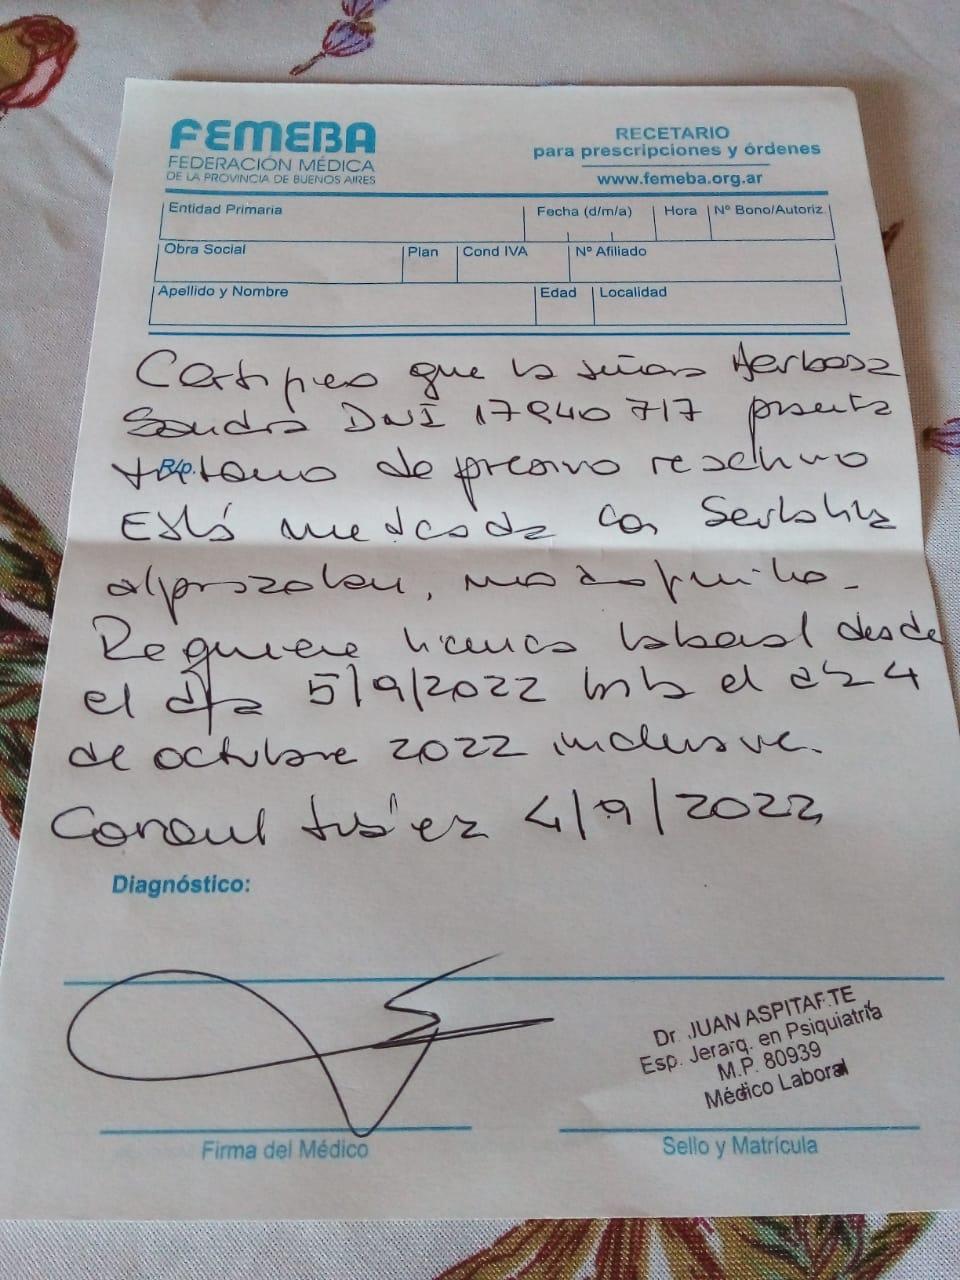 FEMEBA
FEDERACIÓN MÉDICA
DE LA PROVINCIA DE BUENOS AIRES
RECETARIO
para prescripciones y órdenes
www.femeba.org.ar
Entidad Primaria
Fecha (d/m/a)
Hora
Nº Bono/Autoriz.
Obra Social
Plan
Cond IVA
Nº Afiliado
Apellido y Nombre
Edad
Localidad
Certifico que la señora
Sandra DNI 17940717 presenta
Rp.
trastorno depresivo reactivo
Está medicada con Sertralina
alprazolam,
Requiere licencia laboral desde
el día 5/9/2022 hasta el día 4
de octubre 2022 inclusive.
4/9/2022
Diagnóstico:
Dr. JUAN ASPITARTE
Esp. Jerarq. en Psiquiatría
M.P. 80939
Médico Laboral
Firma del Médico
Sello y Matrícula